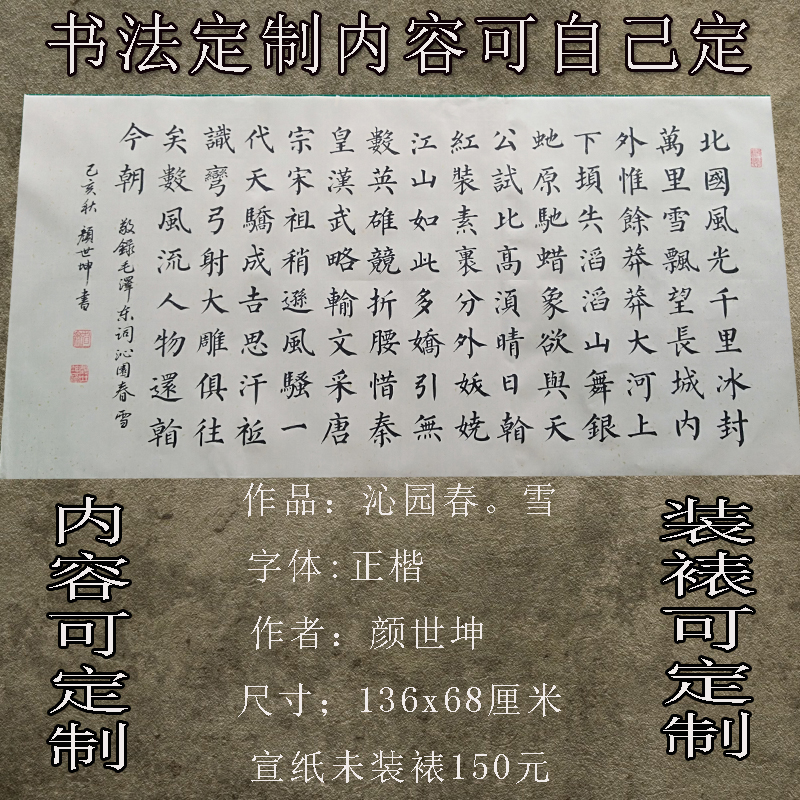 书法定制内容可自己定
北國風光千里冰封
萬里雪飄望長城内
外惟餘莽莽大河上
下頓失滔滔山舞銀
虵原馳蜡象欲與天
公試比高湏晴日看
紅裝素裹分外妖嬈
江山如此多嬌引無
數英雄競折腰惜秦
皇漢武略輸文采唐
宗宋祖稍遜風騷一
代天驕成吉思汗祗
識彎弓射大雕俱往
矣數風流人物還看
今朝
敬錄毛澤东词沁園春雪
己亥秋顏世坤書
内容可定制
作品：沁园春。雪
字体:正楷
作者：颜世坤
尺寸；136x68厘米
宣纸未装裱150元
装裱可定制